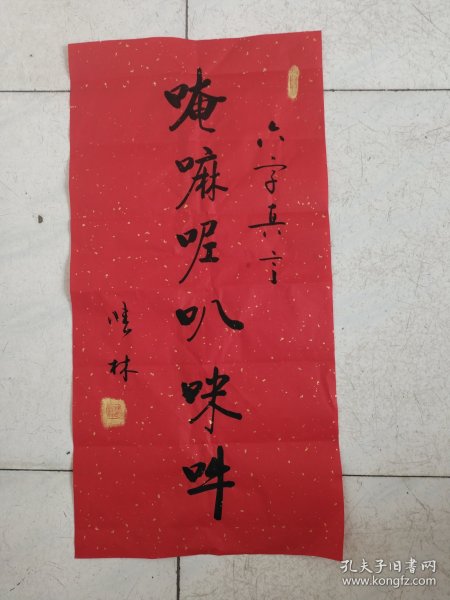 六字真言
唵嘛呢叭咪吽
孔夫子旧书网
www.kongfz.com